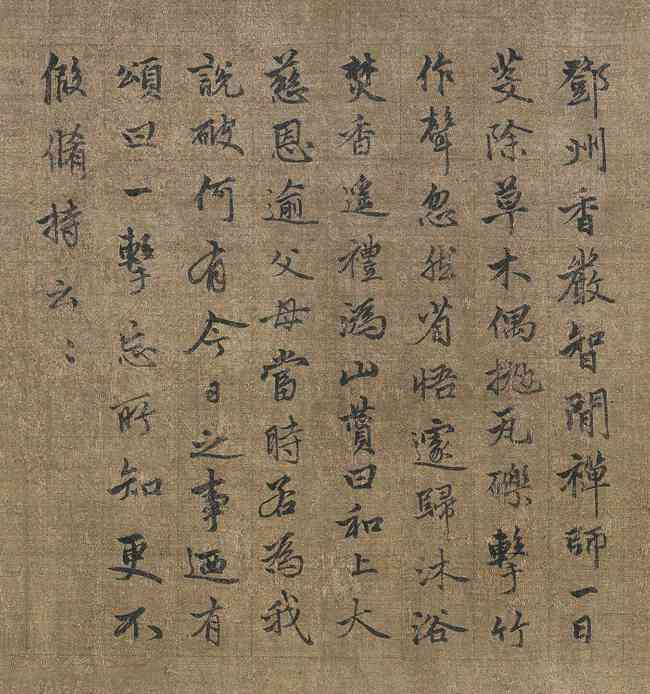 鄧州香嚴智閒禪師一日
芟除草木偶抛瓦礫擊竹
作聲忽然省悟遽歸沐浴
焚香遙禮溈山贊曰和上大
慈恩逾父母當時若為我
說破何有今日之事迺有
頌曰一擊忘所知更不
假脩持云〻